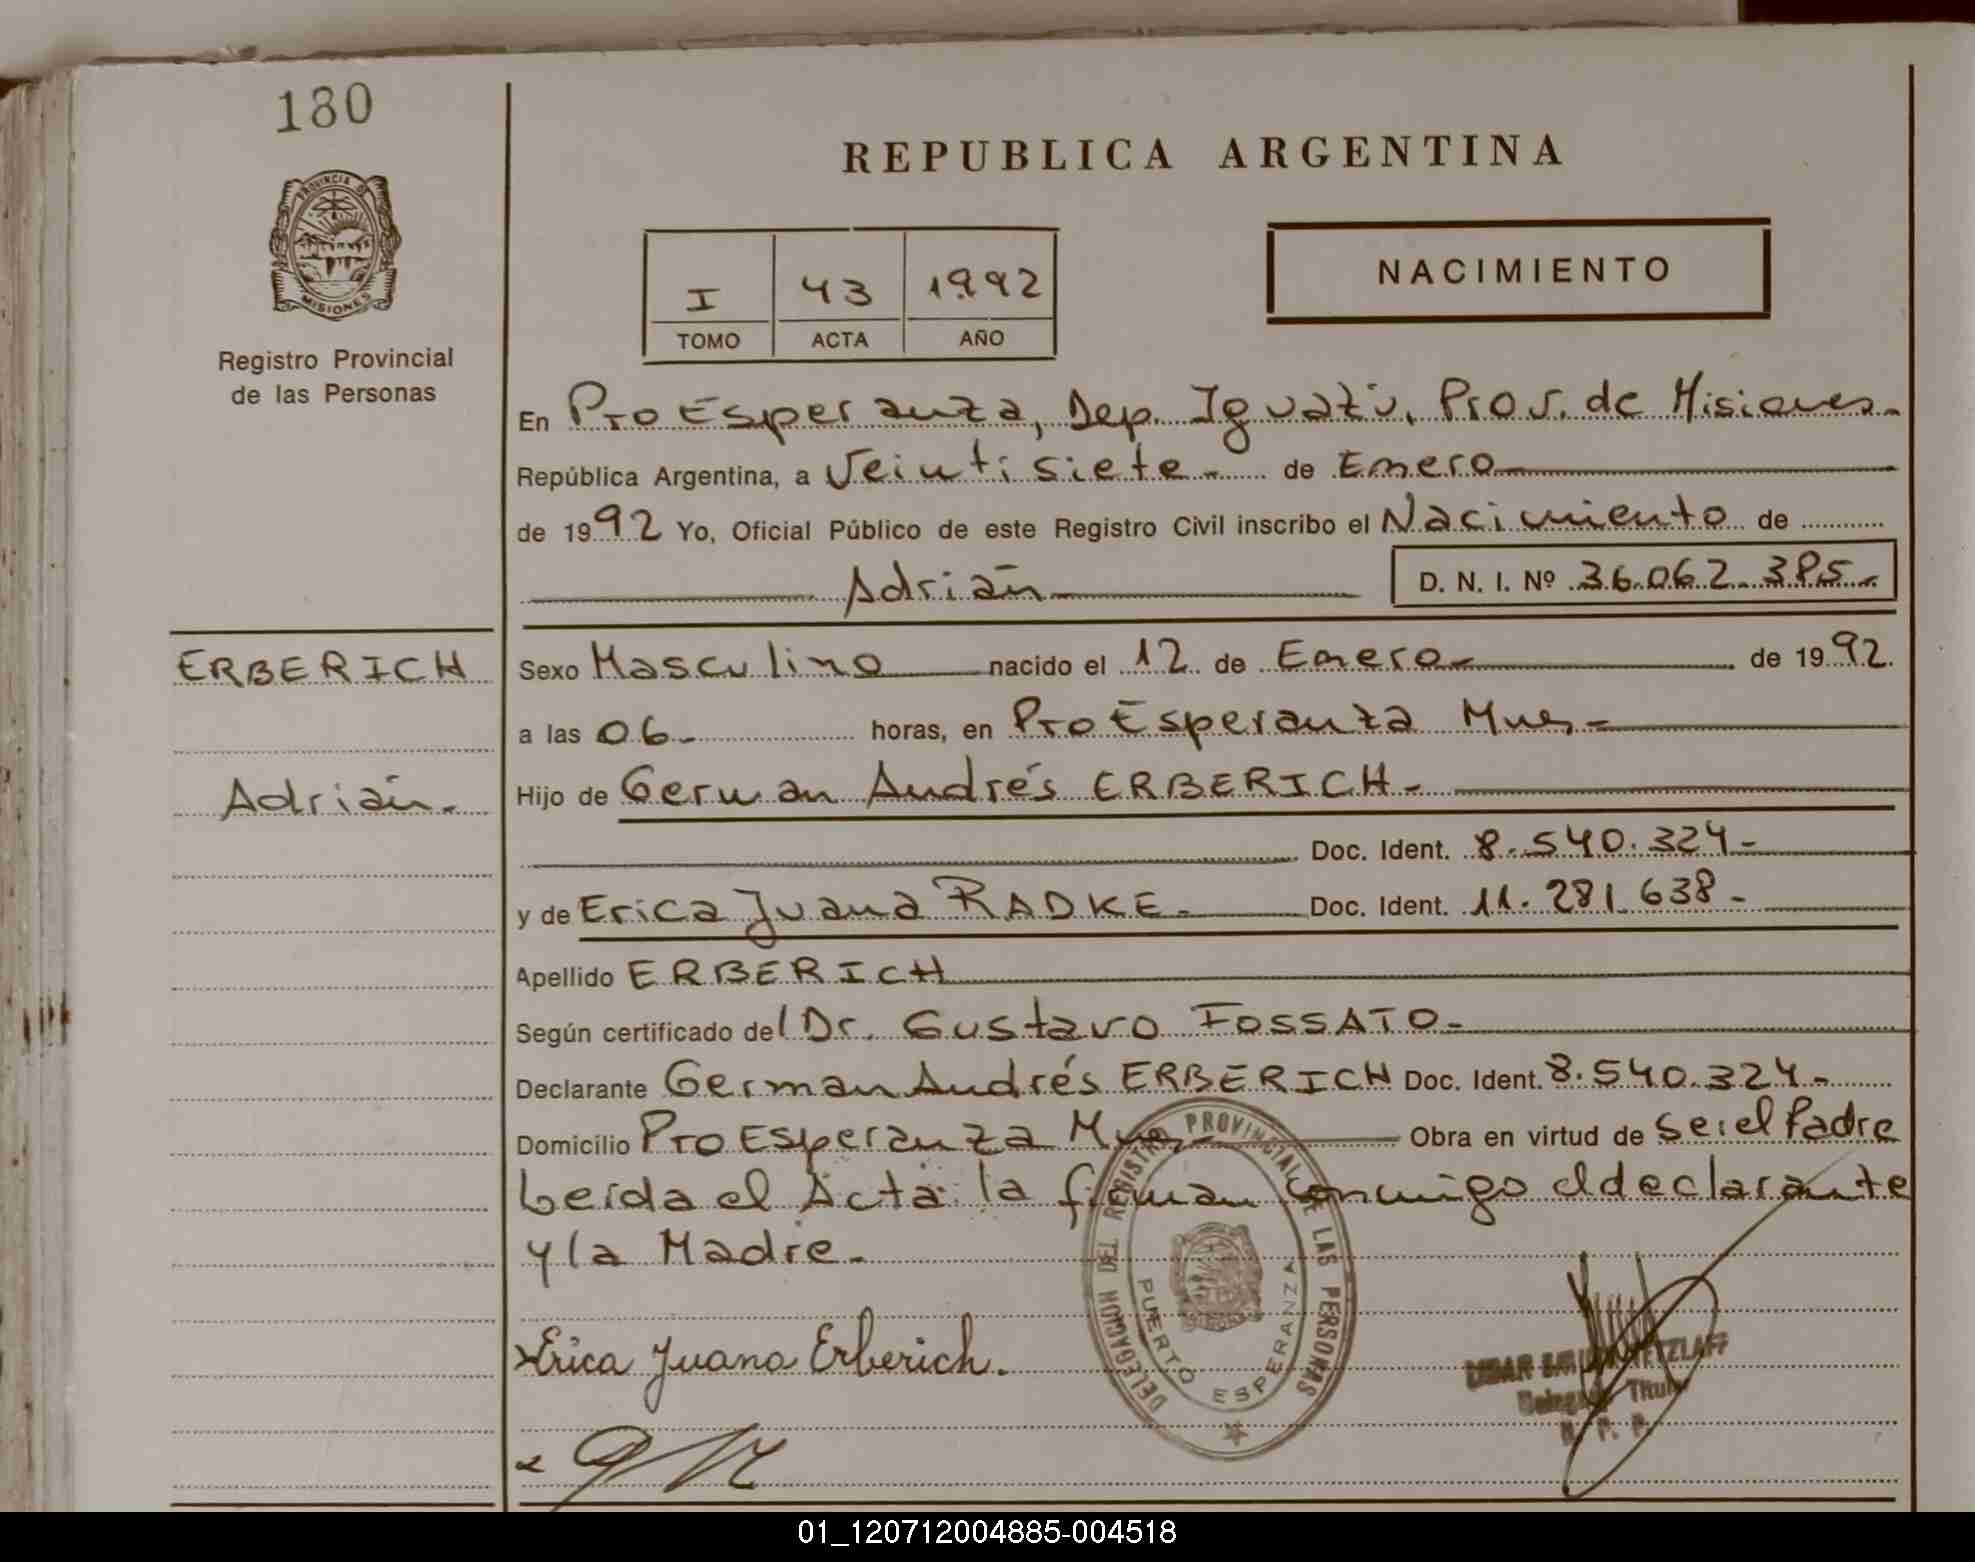 180
PROVINCIA DE
MISIONES
Registro Provincial
de las Personas
REPUBLICA ARGENTINA
I 43 1992
TOMO ACTA AÑO
NACIMIENTO
En Pto Esperanza, Dep. Iguazú, Prov. de Misiones.-
República Argentina, a Veintisiete.- de Enero
de 1992 Yo, Oficial Público de este Registro Civil inscribo el Nacimiento de
Adrián D. N. I. Nº 36.062.385.-
ERBERICH
Adrián.-
Sexo Masculino nacido el 12 de Enero.- de 1992.
a las 06.- horas, en Pto Esperanza Mnes.-
Hijo de German Andrés ERBERICH.-
Doc. Ident. 8.540.324-
y de Erica Juana RADKE.- Doc. Ident. 11.281.638-
Apellido ERBERICH
Según certificado del Dr. Gustavo FOSSATO.-
Declarante German Andrés ERBERICH Doc. Ident. 8.540.324.-
Domicilio Pto Esperanza Mnes.- Obra en virtud de ser el Padre
Leída el Acta la firman conmigo el declarante
y la Madre.-
Erica Juana Erberich.
DELEGACION DEL REGISTRO PROVINCIAL DE LAS PERSONAS
PUERTO ESPERANZA
Titular
R. P. P.
01_120712004885-004518